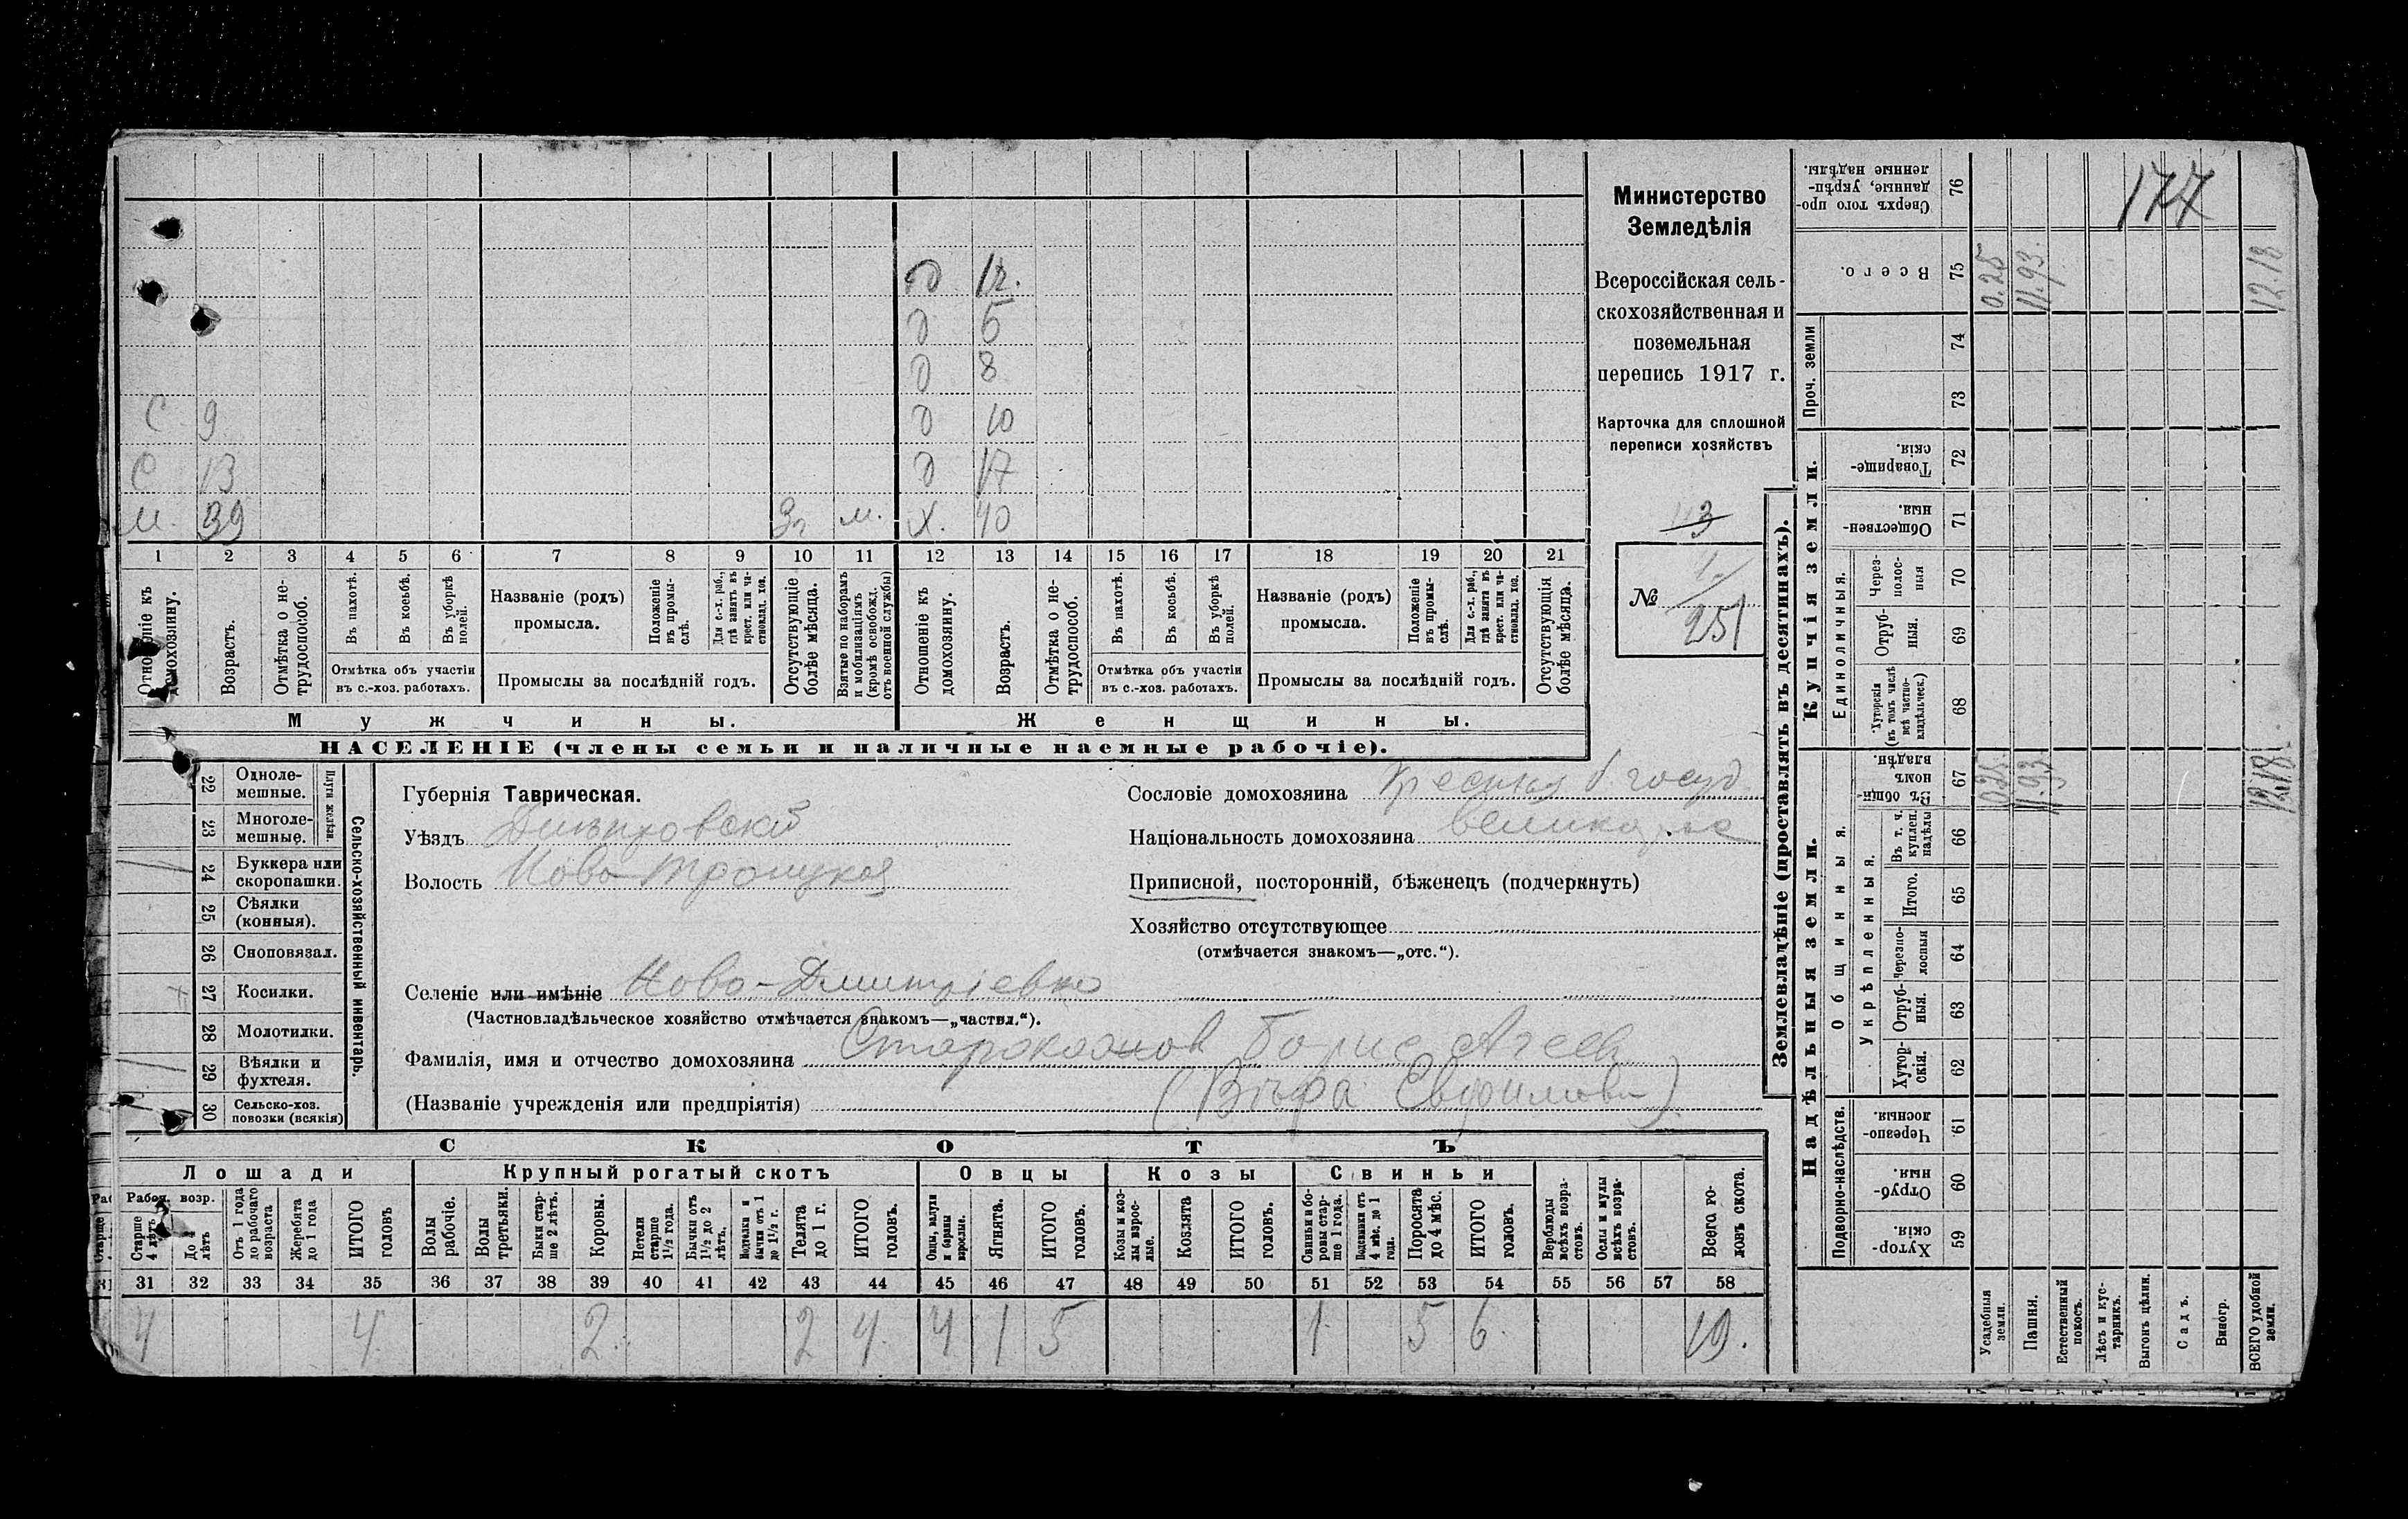 Д 12.
Д 5
Д 8
С 9 Д 10
С 13 Д 17
М. 39 3 г м. Х. 40
1 2 3 4 5 6 7 8 9 10 11 12 13 14 15 16 17 18 19 20 21
Отношеніе къ домохозяину.
Возрастъ.
Отмѣтка о не-
трудоспособ.
Въ пахотѣ.
Въ косьбѣ.
Въ уборкѣ
полей.
Отмѣтка объ участіи
въ с.-хоз. работахъ.
Названіе (родъ)
промысла.
Положеніе
въ промы-
слѣ.
Для с.-х. раб.,
гдѣ занятъ въ
крест. или ча-
стновлад. хоз.
Промыслы за послѣдній годъ.
Отсутствующіе
болѣе мѣсяца.
Взятые по наборамъ
и мобилизаціямъ
(кромѣ освобожд.
отъ военной службы)
Отношеніе къ
домохозяину.
Возрастъ.
Отмѣтка о не-
трудоспособ.
Въ пахотѣ.
Въ косьбѣ.
Въ уборкѣ
полей.
Отмѣтка объ участіи
въ с.-хоз. работахъ.
Названіе (родъ)
промысла.
Положеніе
въ промы-
слѣ.
Для с.-х. раб.,
гдѣ занята въ
крест. или ча-
стновлад. хоз.
Промыслы за послѣдній годъ.
Отсутствующія
болѣе мѣсяца.
Мужчины. Женщины.
НАСЕЛЕНІЕ (члены семьи и наличные наемные рабочіе).
Министерство
Земледѣлія
Всероссійская сель-
скохозяйственная и
поземельная
перепись 1917 г.
Карточка для сплошной
переписи хозяйствъ
113
№ 1
251
22 Одноле-
мешные.
23 Многоле-
мешные.
Плуги желѣзн.
24 Буккера или
скоропашки.
25 Сѣялки
(конныя).
26 Сноповязал.
27 Косилки.
28 Молотилки.
29 Вѣялки и
фухтеля.
30 Сельско-хоз.
повозки (всякія)
Сельско-хозяйственный инвентарь.
Губернія Таврическая.
Уѣздъ Днѣпровскій
Волость Ново-Троицкая
Сословіе домохозяина Крестьян б. госуд.
Національность домохозяина великорос
Приписной, посторонній, бѣженецъ (подчеркнуть)
Хозяйство отсутствующее
(отмѣчается знакомъ—„отс.“).
Селеніе или имѣніе Ново-Дмитріевка
(Частновладѣльческое хозяйство отмѣчается знакомъ—„частвл.“).
Фамилія, имя и отчество домохозяина Борис Агеев
(Названіе учрежденія или предпріятія) (Вѣра Евфимовн)
СКОТЪ
Лошади Крупный рогатый скотъ Овцы Козы Свиньи
Рабоч. возр.
Старше
4 лѣтъ
До 4
лѣтъ
Отъ 1 года
до рабочаго
возраста
Жеребята
до 1 года
ИТОГО
головъ
Волы
рабочіе.
Волы
третьяки.
Быки стар-
ше 2 лѣтъ.
Коровы.
Нетели
старше
1½ года.
Бычки отъ
1½ до 2
лѣтъ.
Подтелки и
бычки отъ 1
до 1½ г.
Телята
до 1 г.
ИТОГО
головъ.
Овцы, валухи
и бараны
взрослые.
Ягнята.
ИТОГО
головъ.
Козы и коз-
лы взрос-
лые.
Козлята
ИТОГО
головъ.
Свиньи и бо-
ровы стар-
ше 1 года.
Подсвинки отъ
4 мѣс. до 1
года.
Поросята
до 4 мѣс.
ИТОГО
головъ.
Верблюды
всѣхъ возра-
стовъ.
Ослы и мулы
всѣхъ возра-
стовъ.
Всего го-
ловъ скота.
31 32 33 34 35 36 37 38 39 40 41 42 43 44 45 46 47 48 49 50 51 52 53 54 55 56 57 58
4 4 2 2 4 4 1 5 1 5 6 19.
Землевладѣніе (проставлять въ десятинахъ).
Надѣльныя земли. Купчія земли. Проч. земли
Подворно-наслѣдств.
Общинныя.
Укрѣпленныя.
Единоличныя.
Сверхъ того про-
данные, укрѣп-
ленные надѣлы.
76
177
Всего.
75 0.25 11.93. 12.18
74
73
Товарище-
скія.
72
Обществен-
ныя.
71
Через-
полос-
ныя
70
Отруб-
ныя.
69
Хуторскія
(въ томъ числѣ
всѣ частно-
владѣльческ.)
68
Въ общин-
номъ
владѣн.
67 0.25. 11.93. 12.18.
Въ т. ч.
куплен.
надѣлы
66
Итого.
65
Черезпо-
лосныя
64
Отруб-
ныя.
63
Хутор-
скія.
62
Черезпо-
лосныя.
61
Отруб-
ныя.
60
Хутор-
скія.
59
Усадебныя
земли.
Пашня.
Естественный
покосъ.
Лѣсъ и кус-
тарникъ.
Выгонъ цѣлин.
Садъ.
Виногр.
ВСЕГО удобной
земли.